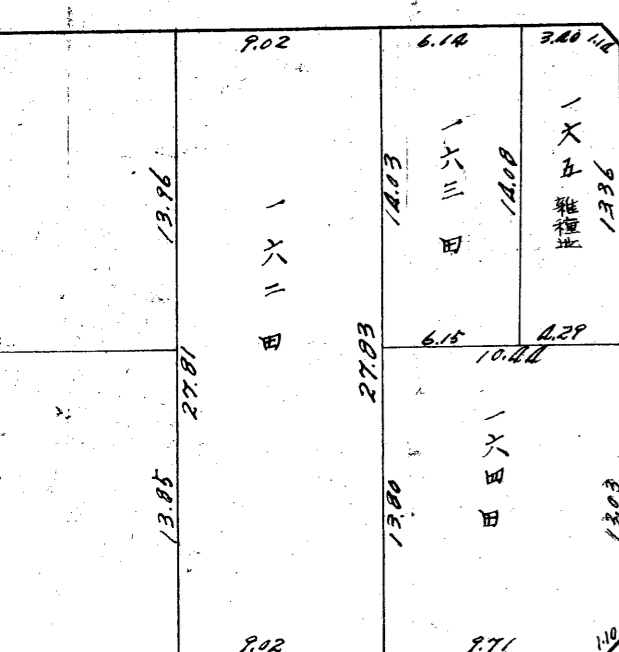 9.02
6.14
3.40
1.14
13.96
一六二 田
14.03
一六三 田
14.08
一六五 雑種地
13.36
27.81
27.83
6.15
4.29
10.44
13.85
13.80
一六四 田
13.03
9.02
9.71
1.10